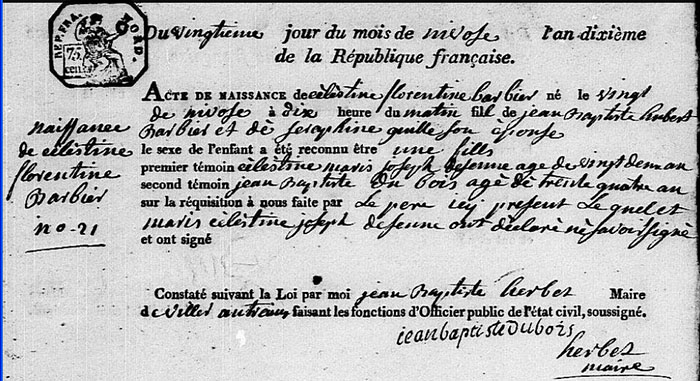 REP. FRA. NORD.
75 cen
Du vingtieme jour du mois de nivose l'an dixième
de la République française.
ACTE DE NAISSANCE de celestine florentine barbier né le vingt
de nivose à dix heure du matin fil de jean Baptiste hubert
Barbier et de seraphine guille son épouse
le sexe de l'enfant a été reconnu être une fille
premier témoin celestine maris joseph defenne age de vingt deux an
second témoin jean Baptiste Du bois agé de trente quatre an
sur la réquisition à nous faite par Le pere icy present Le quel et
maris celestine joseph defenne ont declaré ne savoir signé
et ont signé
naissance
de celestine
florentine
Barbier
no-21
Constaté suivant la Loi par moi jean Baptiste herbet Maire
de viller faisant les fonctions d'Officier public de l'état civil, soussigné.
jeanbaptiste Dubois
herbet
maire